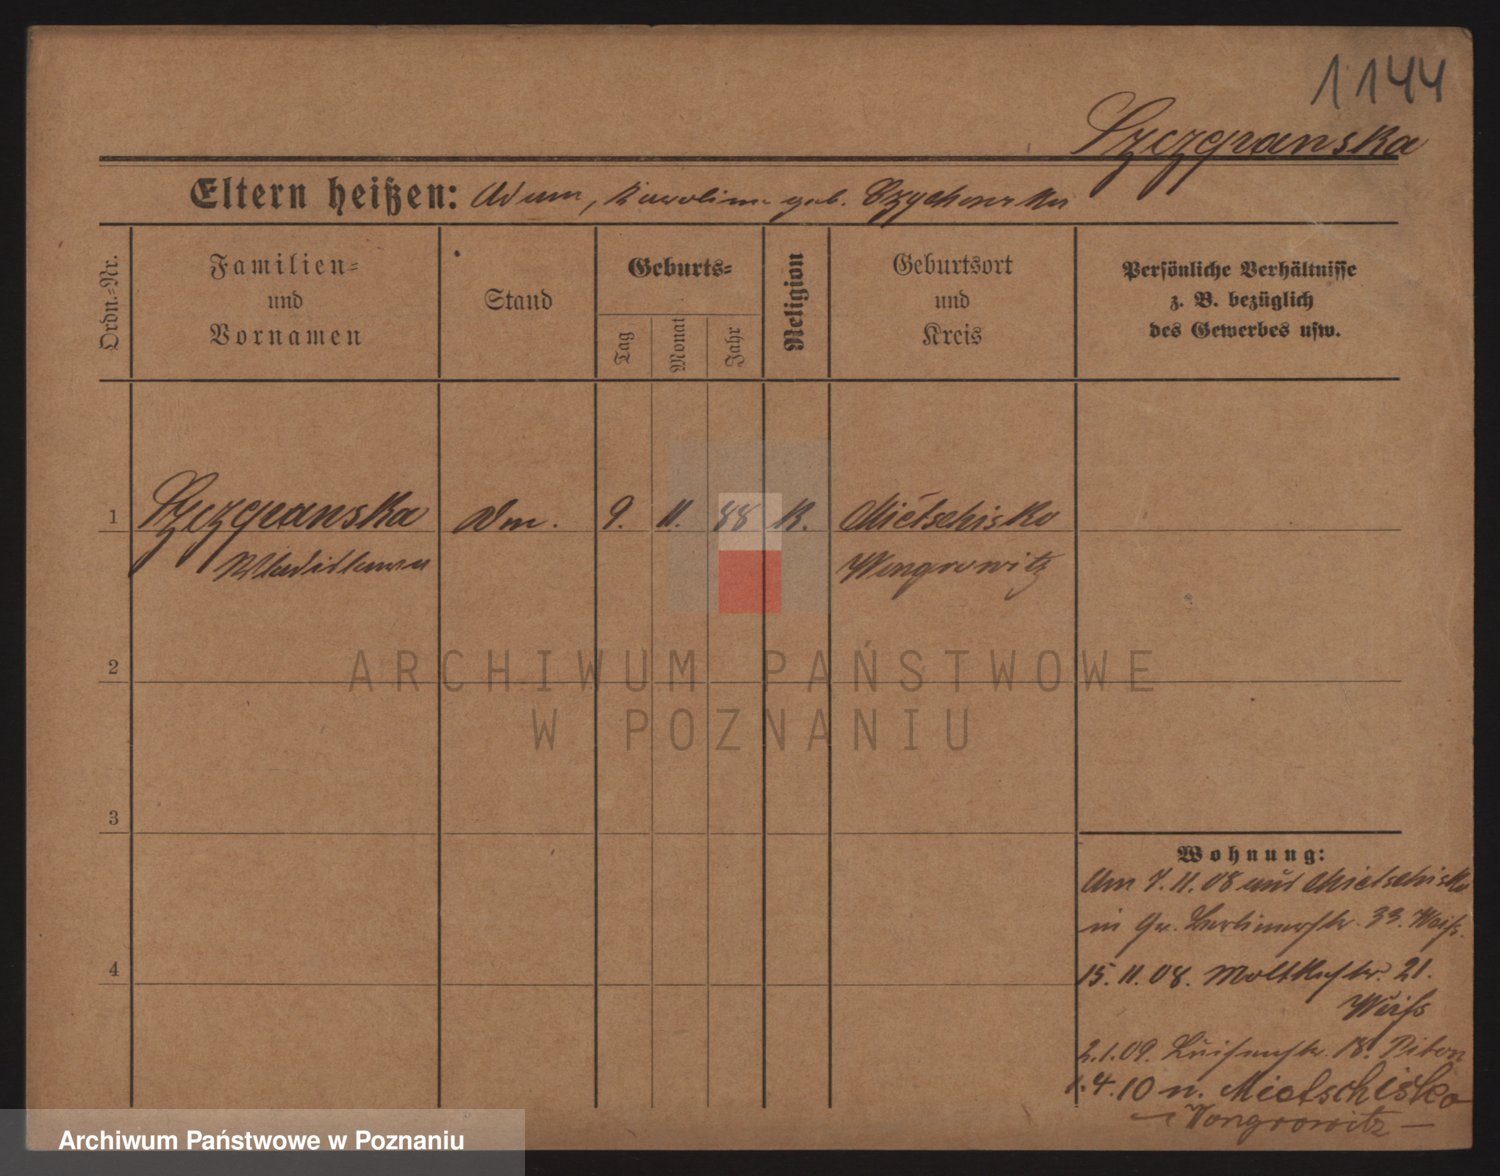 1144
Szczepanska
Eltern heißen: Adam, Karolina geb. Czychowska
Ordn.-Nr.
Familien-
und
Vornamen
Stand
Geburts-
Tag
Monat
Jahr
Religion
Geburtsort
und
Kreis
Persönliche Verhältnisse
z. B. bezüglich
des Gewerbes usw.
1 Szczepanska Dm. 9. 11. 88 K. Mietschisko
Wladislawa Wongrowitz
2
3
4
Wohnung:
Am 7.11.08 aus Mietschisko
in Gr. Berlinerstr. 33.
15.11.08. Moltkestr. 21.
Weiss
2.1.09. Luisenstr. 18.
1.4.10 n. Mietschisko
Wongrowitz
ARCHIWUM PAŃSTWOWE
W POZNANIU
Archiwum Państwowe w Poznaniu